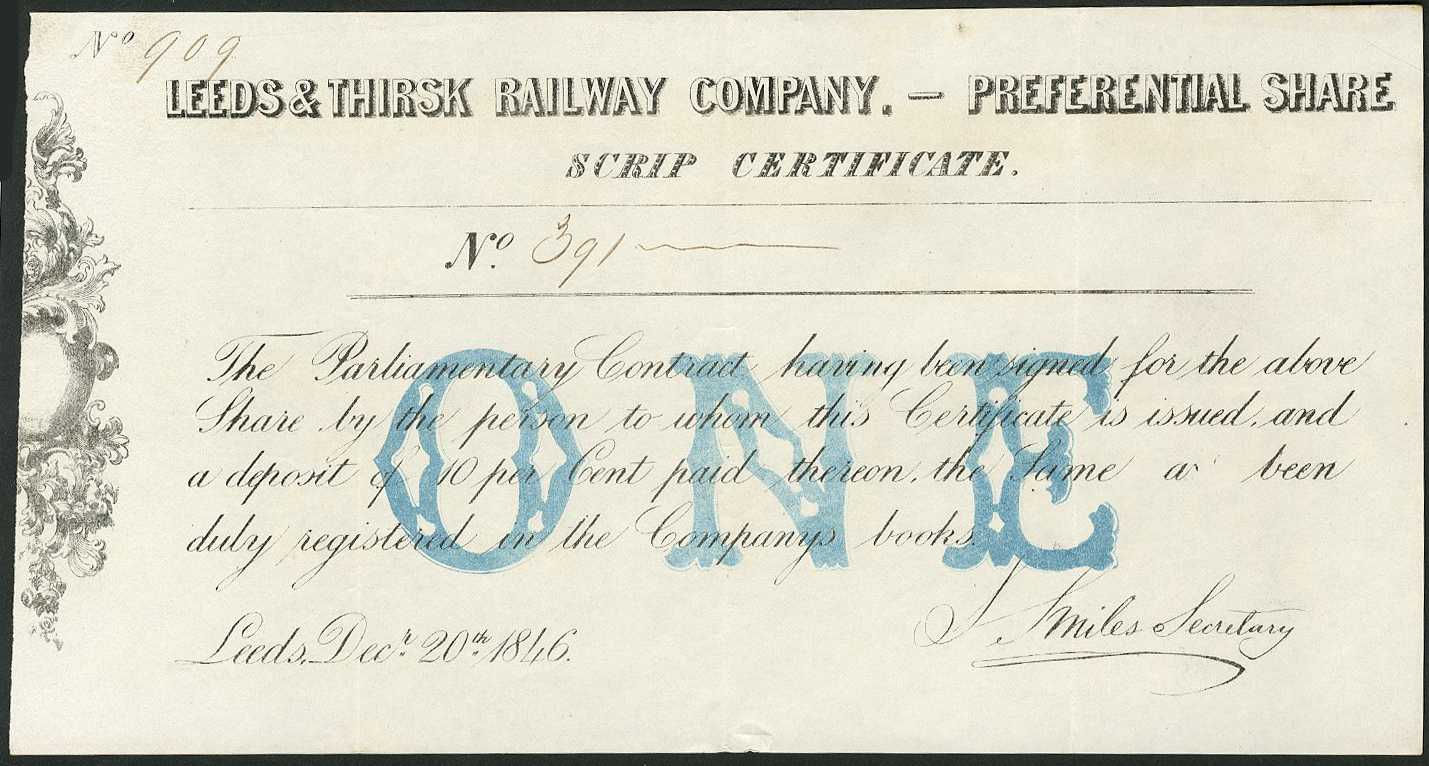 Nº 909
LEEDS & THIRSK RAILWAY COMPANY. — PREFERENTIAL SHARE
SCRIP CERTIFICATE.
Nº. 391
ONE
The Parliamentary Contract having been signed for the above
Share by the person to whom this Certificate is issued, and
a deposit of 10 per Cent paid thereon, the Same a been
duly registered in the Companys books.
Leeds, Decr. 20th 1846.
S. Smiles Secretary